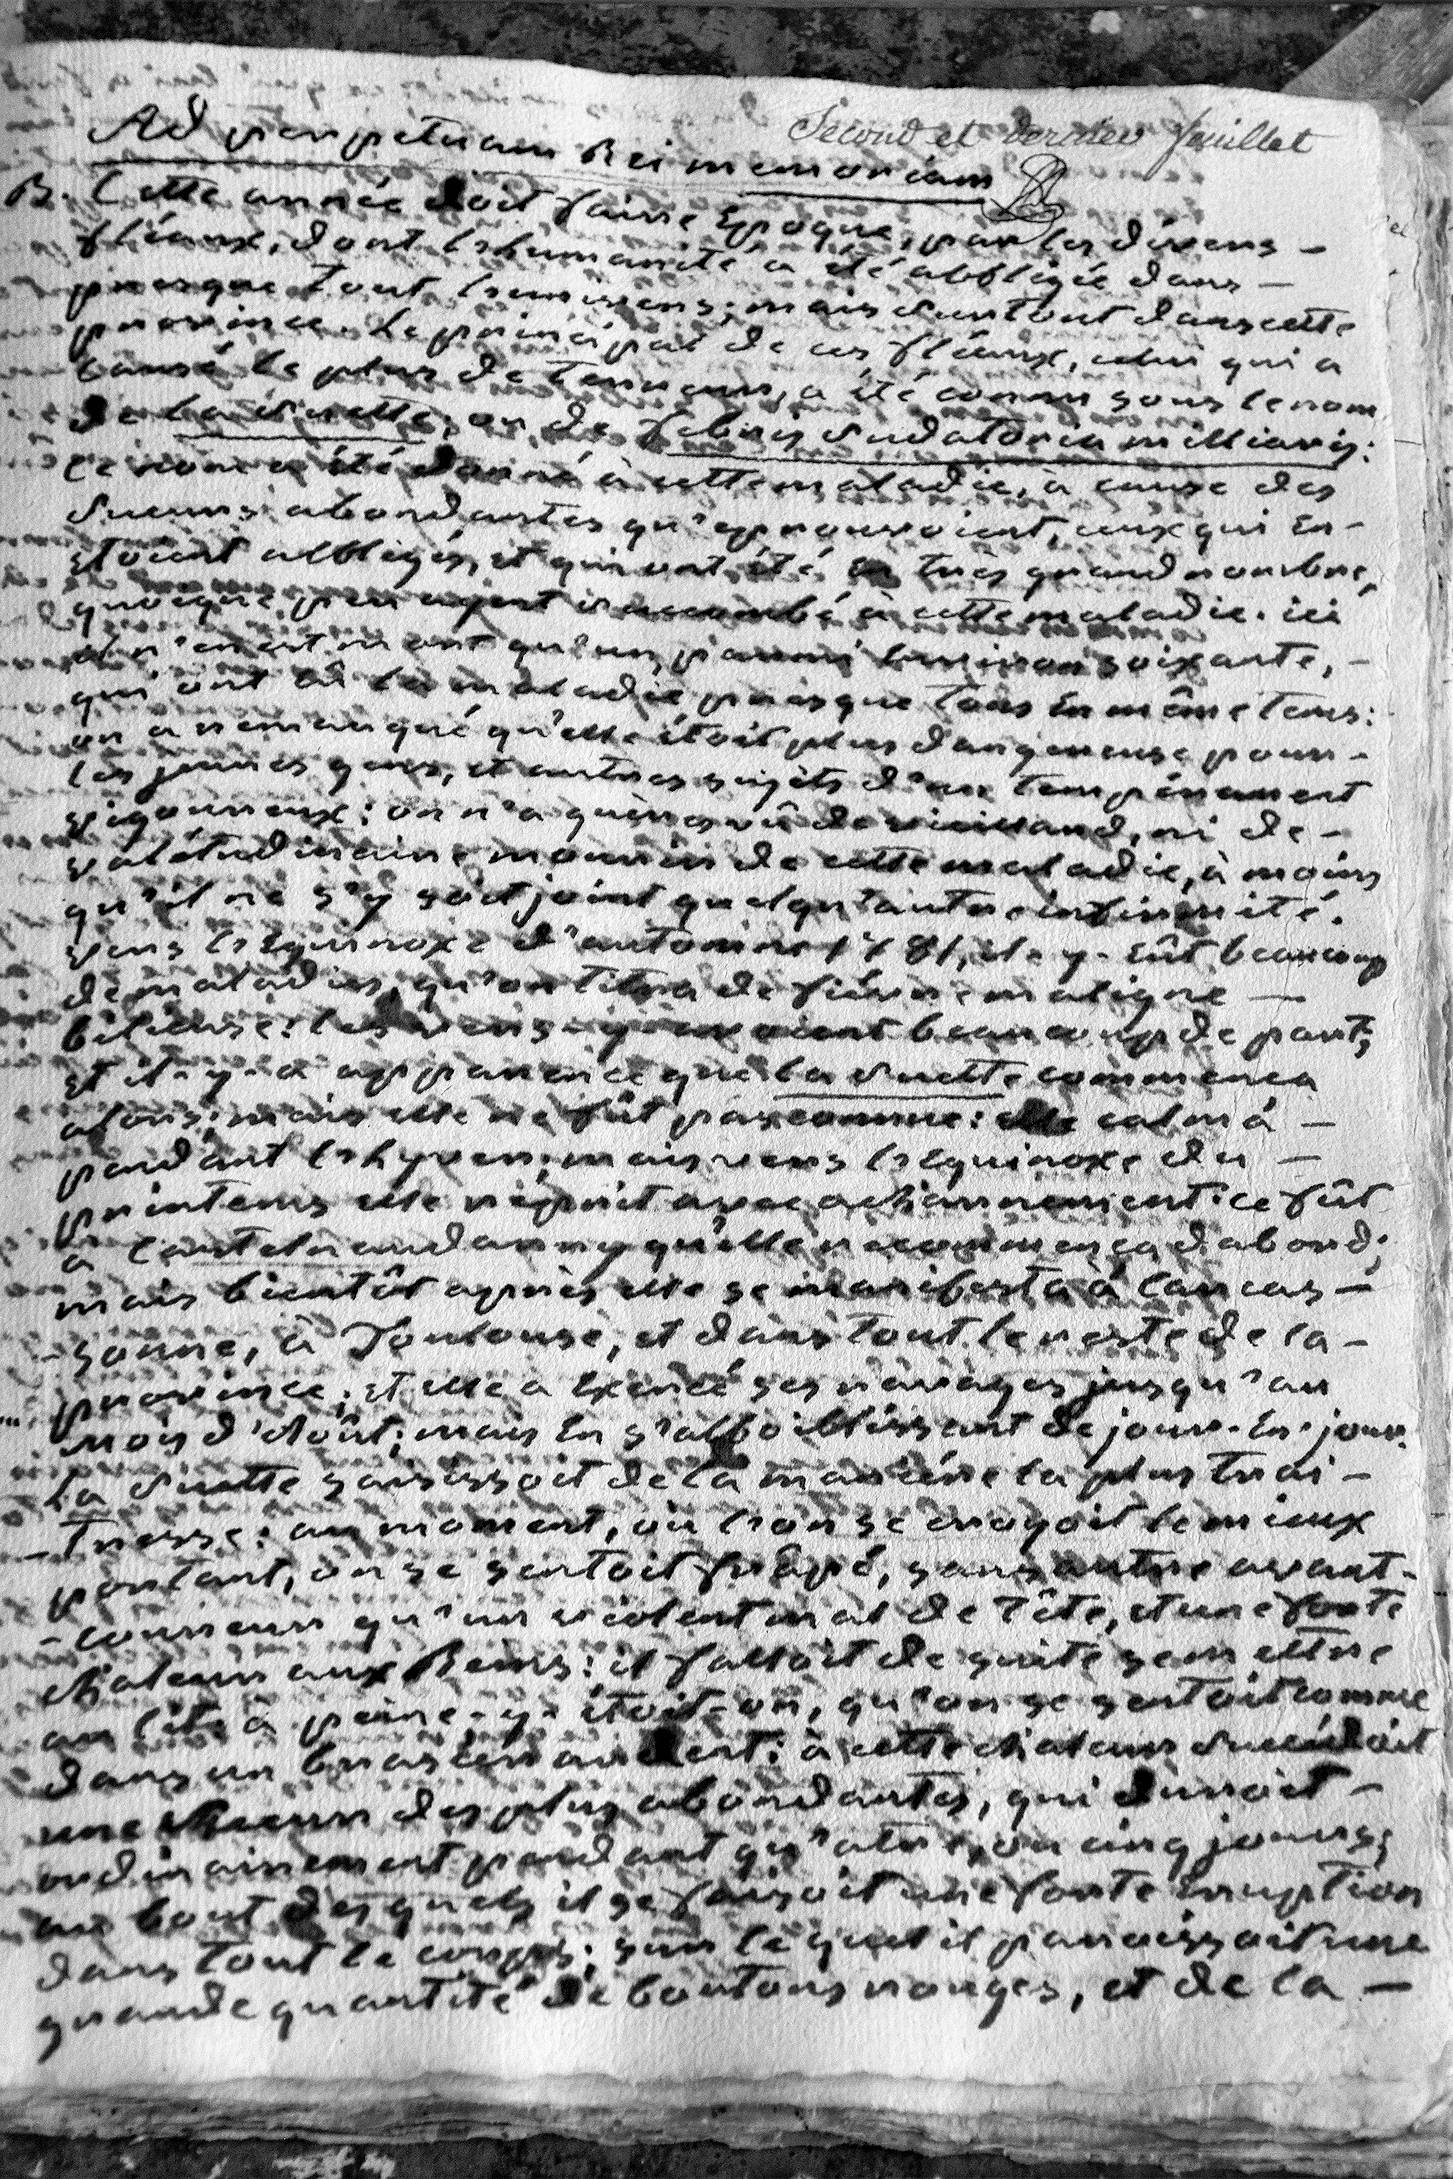 Second et dernier feuillet
Ad perpetuam Rei memoriam
B. Cette année doit faire Epoque, par les divers -
fléaux, dont l'humanité a été affligée dans -
presque tout l'univers; mais surtout dans cette
province. Le principal de ces fléaux, celui qui a
causé le plus de terreur, a été connu sous le nom
de la suette, ou de febris sudatoria milliaris:
ce nom a été donné à cette maladie, à cause des
sueurs abondantes qu'eprouvoient, ceux qui en -
etoient affligés, et qui ont été en très grand nombre,
quoique peu ayent succombé à cette maladie. ici
il n'en est mort qu'un, parmi environ soixante, -
qui ont eû la maladie presque tous En même tems:
on a remarqué qu'elle étoit plus dangereuse pour -
les jeunes gens, et autres sujets d'un tempérament
vigoureux: on n'a guères vû de vieillard, ni de -
valétudinaire mourir de cette maladie, à moins
qu'il ne s'y soit joint quelqu'autre infirmité.
vers l'equinoxe d'automne 1781, il-y-eût beaucoup
de maladies, qu'on titra de fièvre maligne -
bilieuse: les vers-y-avoient beaucoup de part;
et il-y-a apparence que la suette commença
alors; mais elle ne fût pas connue: elle calmá -
pendant l'hyver; mais vers l'equinoxe du -
printems elle réprit avec acharnement: ce fût
à Castelnaudarry qu'elle recommença d'abord;
mais bientôt après elle se manifesta à Carcas -
- sonne, à Toulouse, et dans tout le reste de la -
province; et elle a exercé ses ravages jusqu'au
mois d'Aôut; mais En s'affoiblissant de jour-En-jour.
La suette saisissoit de la manière la plus traî -
- tresse: au moment, où l'on se croyoit le mieux
portant, on se sentoit frapé, sans autre avant -
- coureur qu'un violent mal de Tête, et une forte
chaleur aux Reins: il falloit de suite se mettre
au lit: à peine-y-étoit-on, qu'on se sentoit comme
dans un brasier ardent: à cette chaleur succédoit
une sueur des plus abondantes, qui duroit -
ordinairement pendant qu'atre, ou cinq jours;
au bout desquels il se faisoit une forte éruption
dans tout le corps; sur lequel il paroissoit une
grande quantité de boutons rouges, et de la -